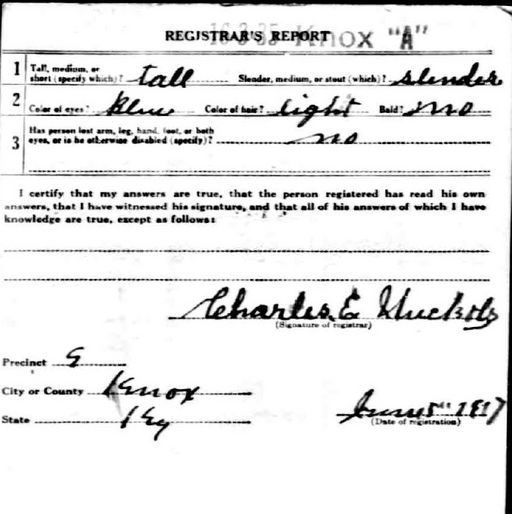 REGISTRAR'S REPORT
16-3-35 Knox "A"
1 Tall, medium, or short (specify which)? tall Slender, medium, or stout (which)? slender
2 Color of eyes? Blue Color of hair? light Bald? no
3 Has person lost arm, leg, hand, foot, or both eyes, or is he otherwise disabled (specify)? no
I certify that my answers are true, that the person registered has read his own
answers, that I have witnessed his signature, and that all of his answers of which I have
knowledge are true, except as follows:
Charles E Nuckols
(Signature of registrar)
Precinct
City or County Knox
State Ky
June 5" 1917
(Date of registration)